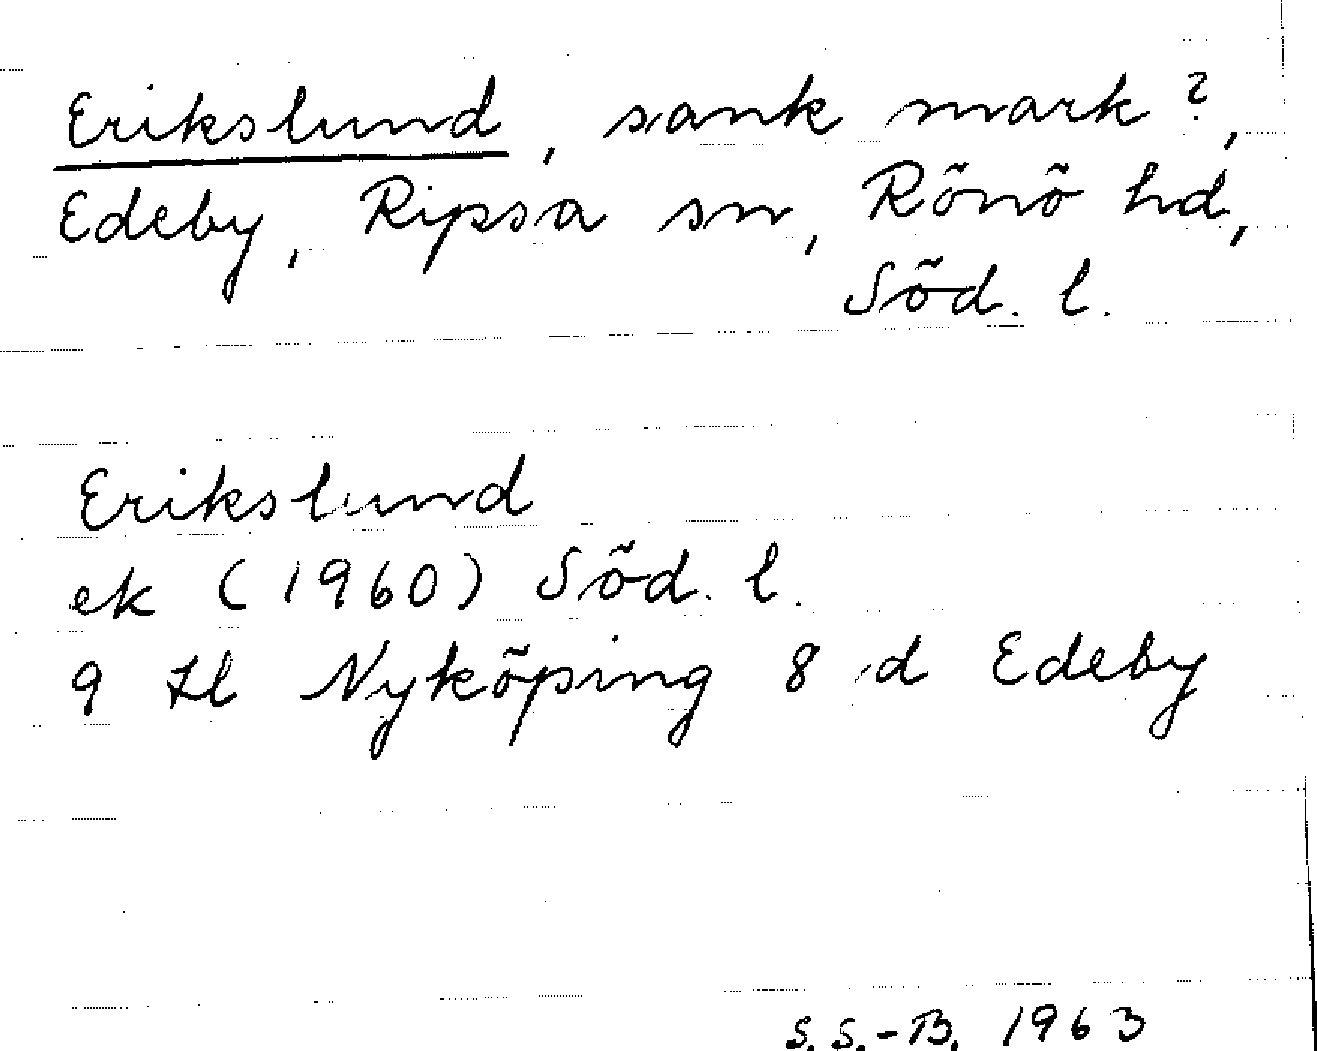 Erikslund, sank mark?,
Edeby, Ripsa sn, Rönö hd,
Söd. l.
Erikslund
ek (1960) Söd. l.
9 H Nyköping 8 d Edeby
S. S.-B. 1963